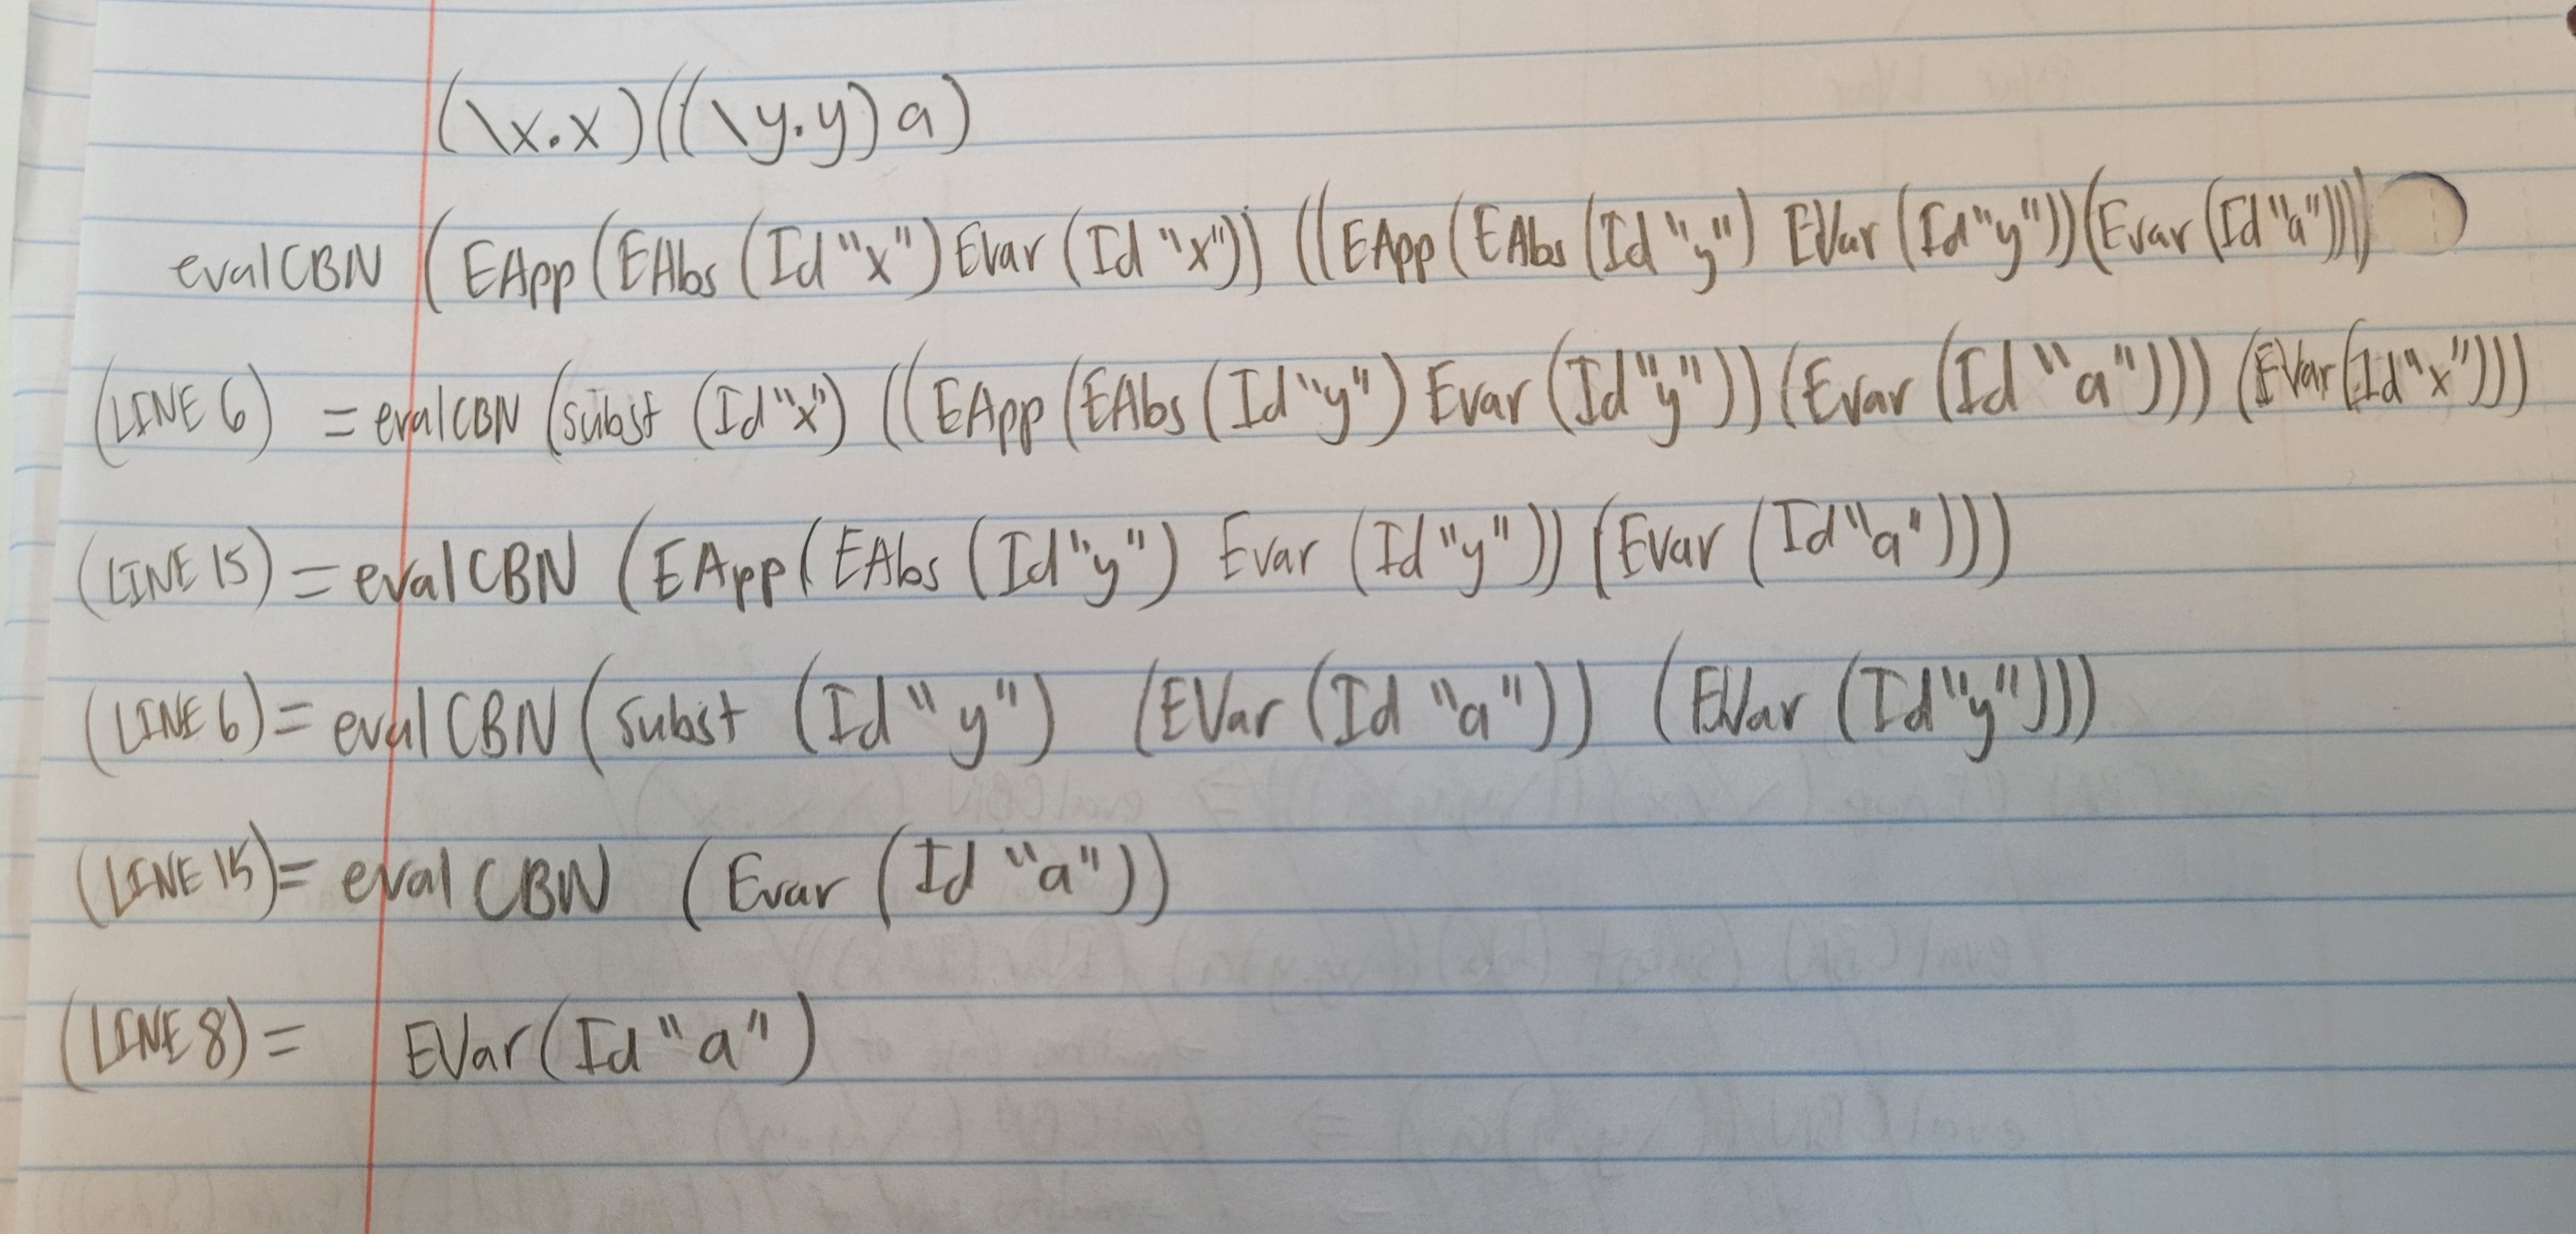 (\x.x)((\y.y)a)
evalCBN (EApp(EAbs(Id"x")Evar(Id"x")) ((EApp(EAbs(Id"y") EVar(Id"y"))(Evar(Id"a"))))
(LINE 6) = evalCBN (subst (Id"x") ((EApp(EAbs(Id"y") Evar(Id"y"))(Evar(Id"a"))) (EVar(Id"x")))
(LINE 15) = evalCBN (EApp(EAbs(Id"y") Evar(Id"y")) (Evar(Id"a")))
(LINE 6) = evalCBN (subst (Id"y") (EVar(Id"a")) (EVar(Id"y")))
(LINE 15) = evalCBN (Evar(Id"a"))
(LINE 8) = EVar(Id"a")